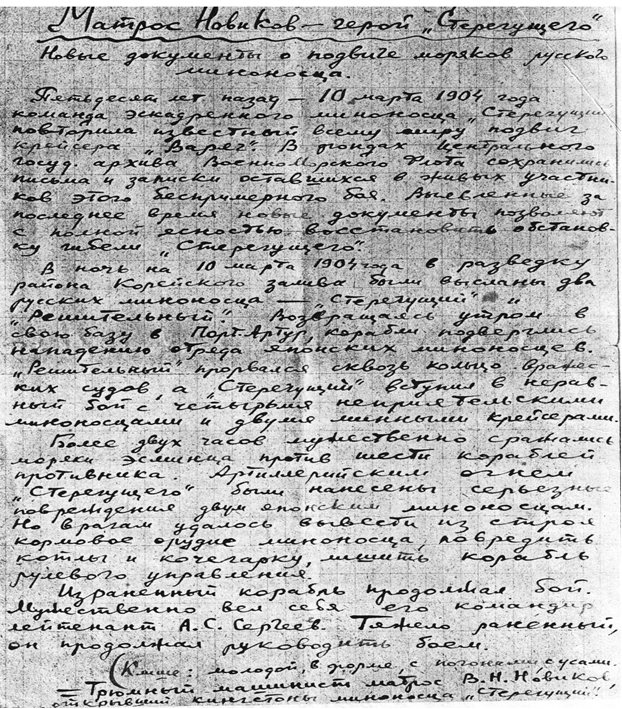 Матрос Новиков – герой „Стерегущего"
Новые документы о подвиге моряков русского
миноносца.
Пятьдесят лет назад – 10 марта 1904 года
команда эскадренного миноносца „Стерегущий"
повторила известный всему миру подвиг
крейсера „Варяг". В фондах Центрального
госуд. архива Военно-Морского Флота сохранились
письма и записки оставшихся в живых участни-
ков этого беспримерного боя. Выявленные за
последнее время новые документы позволяют
с полной ясностью восстановить обстанов-
ку гибели „Стерегущего".
В ночь на 10 марта 1904 года в разведку
района Корейского залива были высланы два
русских миноносца – „Стерегущий" и
„Решительный". Возвращаясь утром в
свою базу в Порт-Артур, корабли подверглись
нападению отряда японских миноносцев.
„Решительный" прорвался сквозь кольцо вражес-
ких судов, а „Стерегущий" вступил в нерав-
ный бой с четырьмя неприятельскими
миноносцами и двумя минными крейсерами.
Более двух часов мужественно сражались
моряки эсминца против шести кораблей
противника. Артиллерийским огнем
„Стерегущего" были нанесены серьезные
повреждения двум японским миноносцам.
Но врагам удалось вывести из строя
кормовое орудие миноносца, повредить
котлы и кочегарку, лишить корабль
рулевого управления.
Израненный корабль продолжал бой.
Мужественно вел себя его командир
лейтенант А.С. Сергеев. Тяжело раненный,
он продолжал руководить боем.
(Клише: молодой, в форме, с погонами с усами.
= Трюмный машинист матрос В.Н. Новиков,
открывший кингстоны миноносца „Стерегущий".